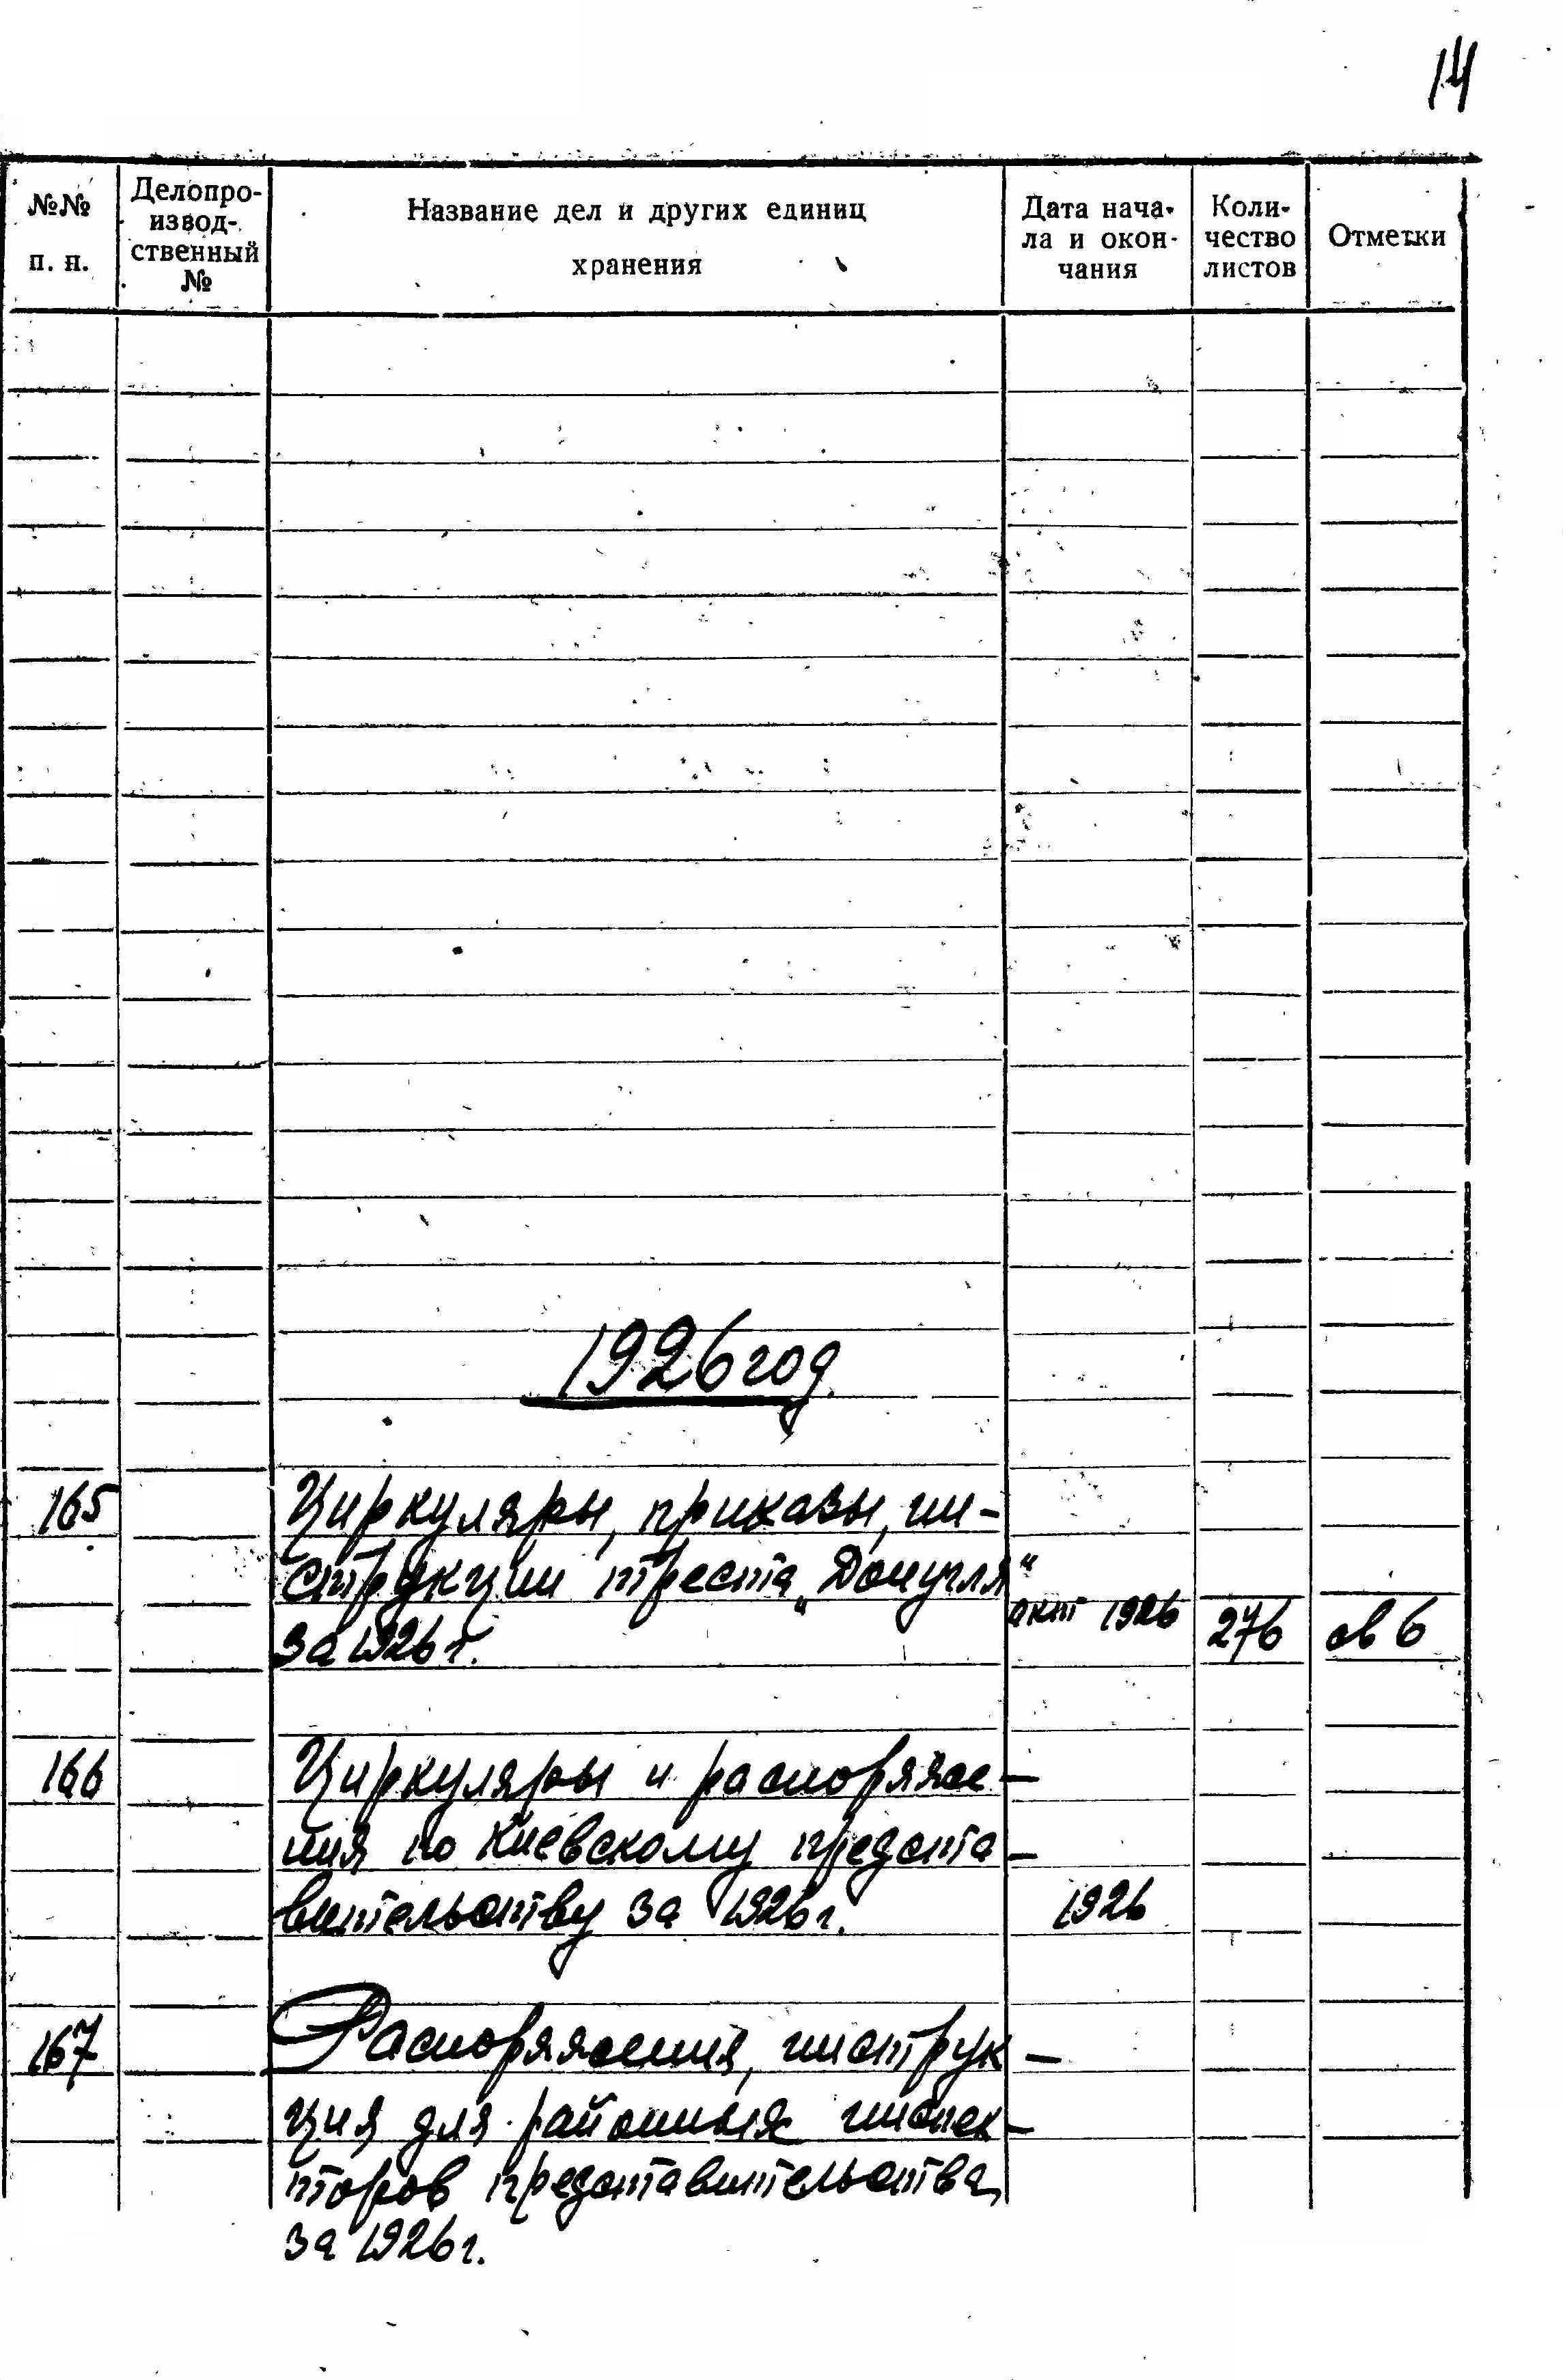 14
№№
п. н.
Делопро-
извод-
ственный
№
Название дел и других единиц
хранения
Дата нача-
ла и окон-
чания
Коли-
чество
листов
Отметки
1926 год.
165
Циркуляры, приказы, ин-
струкции треста „Донугля“
за 1926 г.
окт 1926
276
св 6
166
Циркуляры и распоряже-
ния по Киевскому предста-
вительству за 1926 г.
1926
167
Распоряжения, инструк-
ция для районных инспек-
торов представительства
за 1926 г.